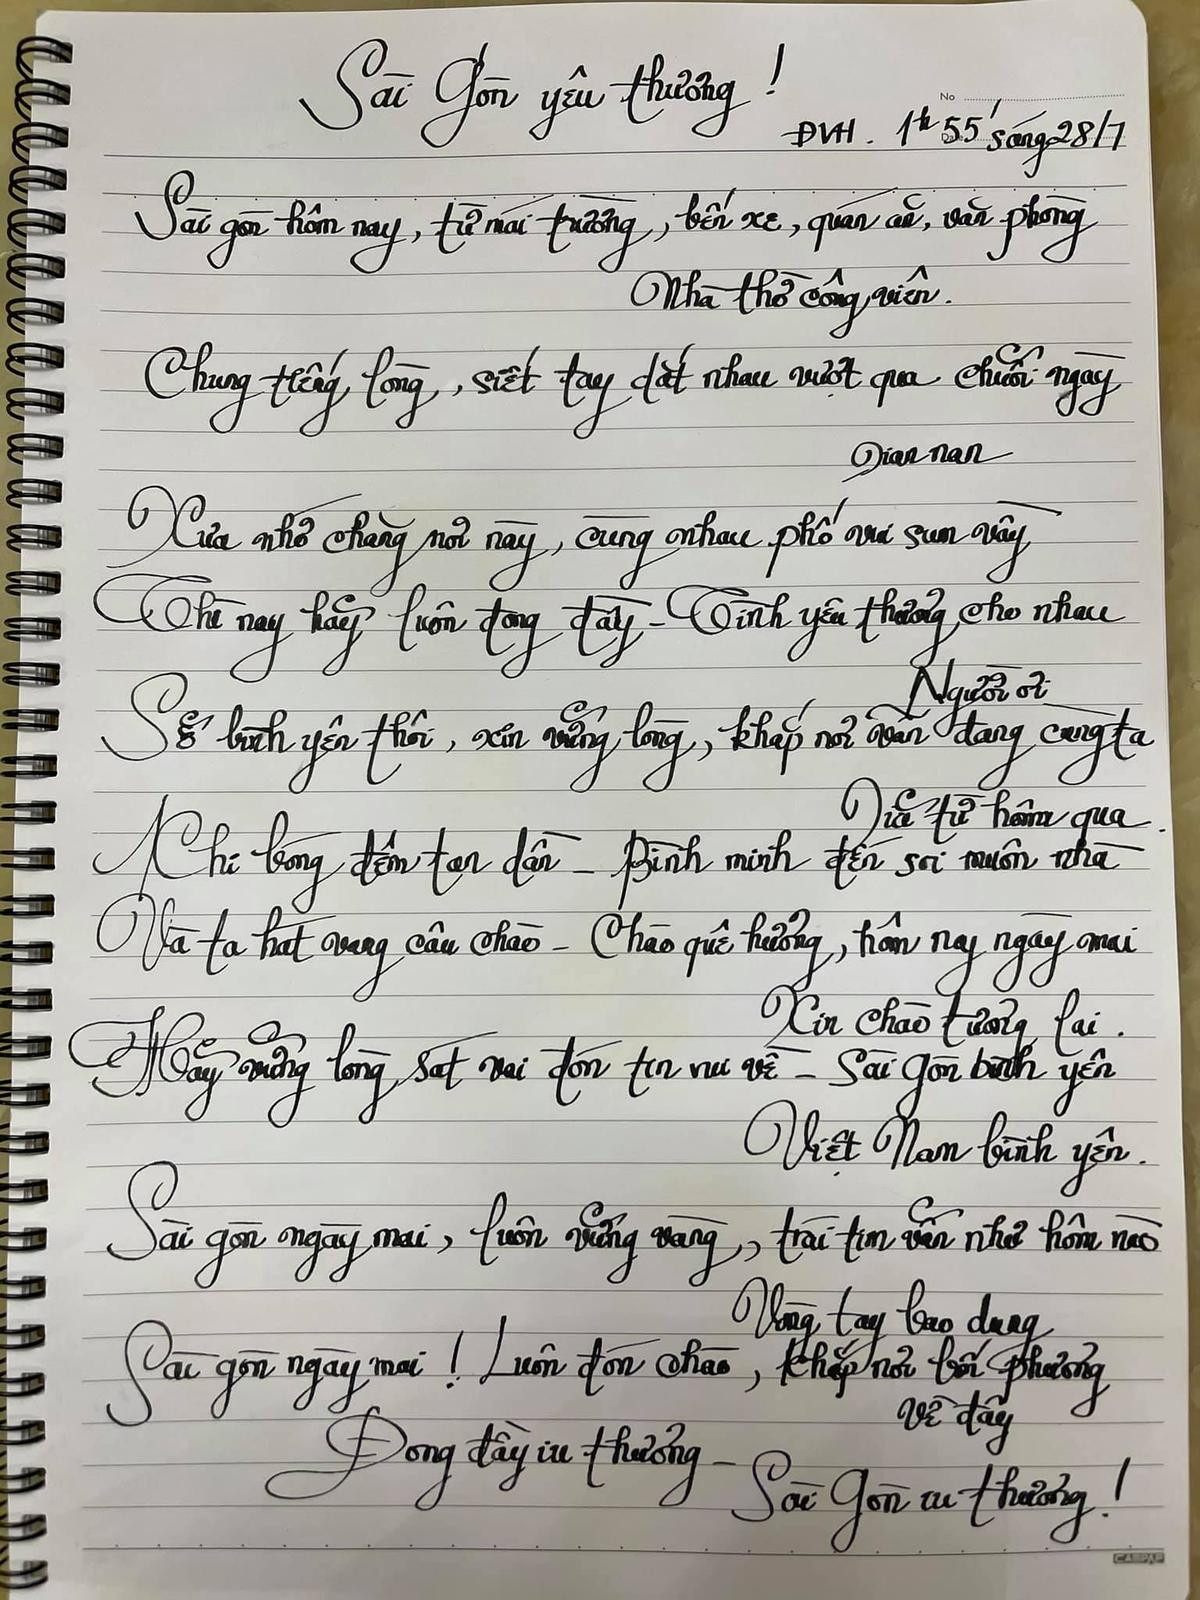 Sài Gòn yêu thương !
No
Date
ĐVH. 1h 55' sáng 28/7
Sài gòn hôm nay, từ mái trường, bến xe, quán ăn, văn phòng
Nhà thờ công viên.
Chung tiếng lòng, siết tay dắt nhau vượt qua chuỗi ngày
Gian nan
Xưa nhớ chăng nơi này, cùng nhau phố vui sum vầy
Thì nay hãy luôn đong đầy - Tình yêu thương cho nhau
Người ơi
Sẽ bình yên thôi, xin vững lòng, khắp nơi vẫn đang cùng ta
Giữ từ hôm qua.
Khi bóng đêm tan dần - Bình minh đến soi muôn nhà
Và ta hát vang câu chào - Chào quê hương, hôm nay ngày mai
Xin chào tương lai.
Hãy vững lòng sát vai đón tin vui về - Sài Gòn bình yên
Việt Nam bình yên.
Sài gòn ngày mai, luôn vững vàng, trái tim vẫn như hôm nào
Vòng tay bao dung
Sài gòn ngày mai ! Luôn đón chào, khắp nơi bốn phương
về đây
Đong đầy iu thương -
Sài Gòn iu thương !
CAMPAP